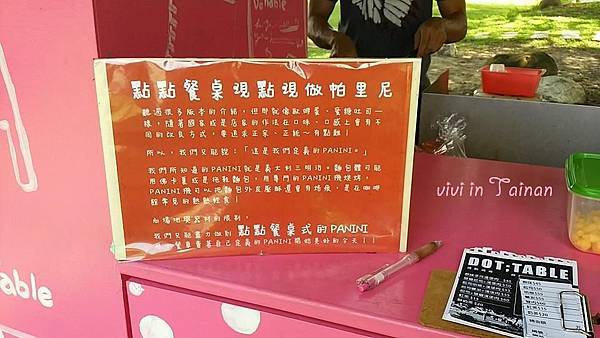 點點餐桌現點現做帕里尼
聽過很多版本的介紹，但那就像歐姆蛋、蜜糖吐司一
樣，隨著國家或是店家的作法在口味、口感上會有不
同的改良方式，要追求正宗、正統～有點難！
所以，我們只能說：「這是我們定義的PANINI。」
我們所知道的PANINI就是義大利三明治。麵包體可能
用佛卡夏或是拖鞋麵包，用專門的PANINI機燒烤，
PANINI機可以把麵包外皮壓酥還會有烙痕，是在咖啡
館常見的熱熱輕食！
但場地與器材的限制，
我們只能盡力做到 點點餐桌式的PANINI
vivi in Tainan
DOT;TABLE
able